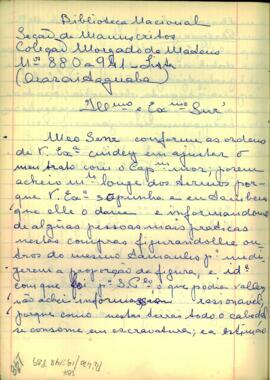 Biblioteca Nacional
Seção de Manuscritos
Coleção Morgado de Mateus
M.s 880 a 941 - Lata
(Araraitaguaba)
Ill.mo e Ex.mo Snr'
Meo Senr conforme as ordens
de V. Ex.a cuidey em ajustar o
meu trato com o Cap.m mor, porem
acheio m.to longe dos termos por
que V. Ex.a supunha e eu tambem
que elle o dava e informandome
de algũas pessoas mais praticas
nestas compras figurandolhe ou
tros do mesmo tamanho p.a medi
rem a proporção da figura, e id.e
com que foi p.a S. P.lo, o que podia valler,
não achei informação ressonavel,
porque como nestas terras todo o cabedal
se consome em escravatura; e a estimação